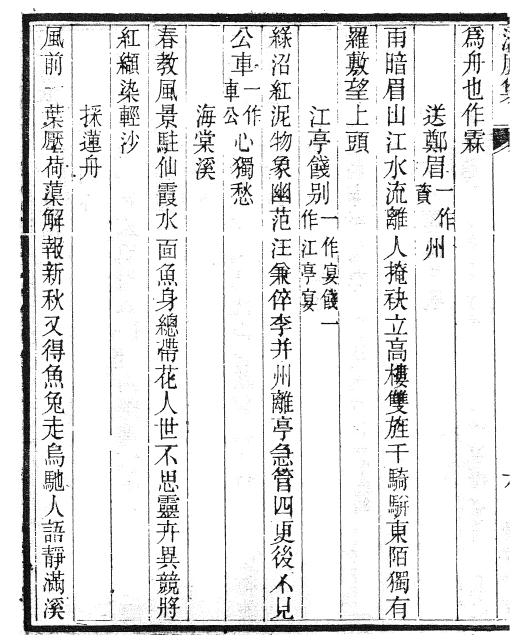 為舟也作霖
送鄭眉一作資州
雨暗眉山江水流離人掩袂立高樓雙旌千騎駢東陌獨有
羅敷望上頭
江亭餞別一作宴餞一作江亭宴
綠沼紅泥物象幽范汪兼倅李并州離亭急管四更後不見
公車一作車公心獨愁
海棠溪
春教風景駐仙霞水面魚身總帶花人世不思靈卉異競將
紅纈染輕沙
採蓮舟
風前一葉壓荷蕖解報新秋又得魚兔走烏馳人語靜滿溪